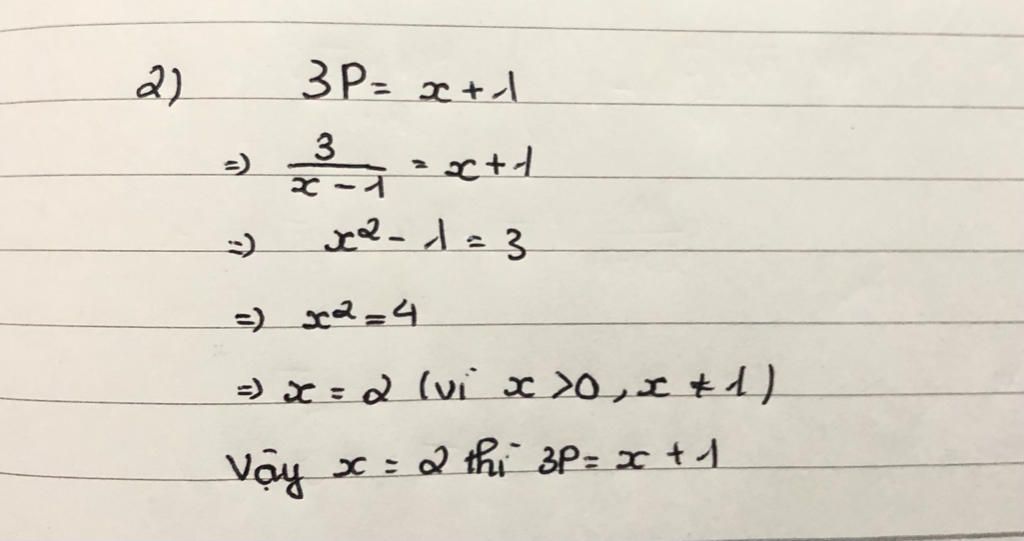 2) 3P = x + 1
=> \frac{3}{x - 1} = x + 1
=> x² - 1 = 3
=> x² = 4
=> x = 2 (vì x > 0, x ≠ 1)
Vậy x = 2 thì 3P = x + 1